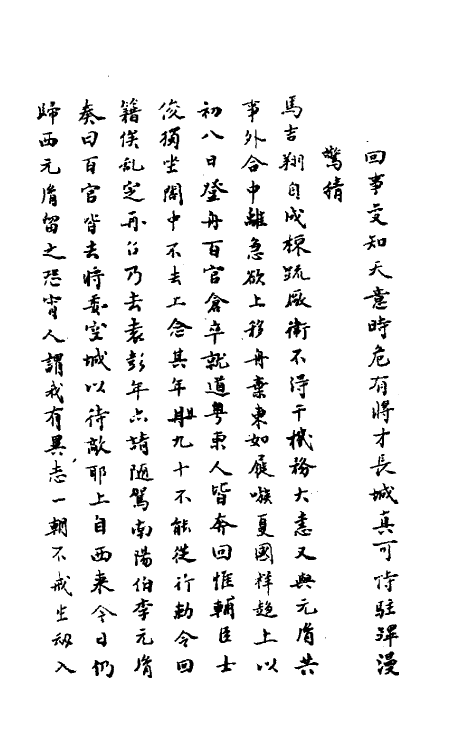 回事安知天意時危有將才長城真可恃駐蹕漫
驚猜
馬吉翔自成棟疏厰衛不得干機務大恚又與元胤共
事外合中離急欲上移舟棄東如屣嗾夏國祥趣上以
初八日登舟百官倉卒就道粵東人皆奔回惟輔臣士
俊獨坐閣中不去上念其年九十不能從行勅令回
籍俟乱定再召乃去袁彭年六請随駕南陽伯李元胤
奏曰百官皆去將委空城以待敵耶上自西来今日仍
歸西元胤留之恐宵人謂我有異志一朝不戒生刼入